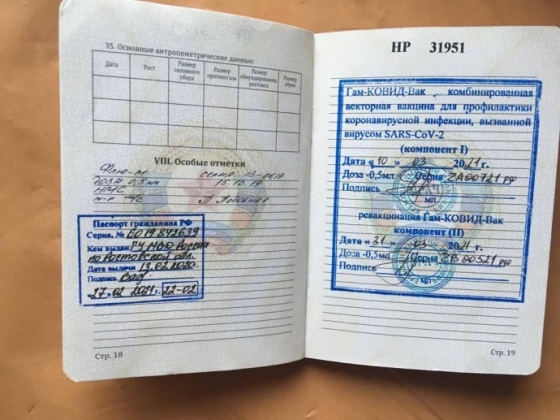 35. Основные антропометрические данные:
Дата Рост Размер головного убора Размер противогаза Размер обмундирования, ростовка Размер обуви
VIII. Особые отметки
15.10.19
Паспорт гражданина РФ
Серия, № 6019 842639
Кем выдан ГУ МВД России
по Ростовской обл.
Дата выдачи 13.02.2020.
Подпись
27.02 2021г. 22-02
Стр. 18
НР 31951
Гам-КОВИД-Вак комбинированная
векторная вакцина для профилактики
коронавирусной инфекции, вызванной
вирусом SARS-CoV-2
(компонент I)
Дата «10» 03 2021г.
Доза -0,5мл Серия
Подпись
МП
ревакцинация Гам-КОВИД-Вак
компонент (II)
Дата «31 03 2021г.
Доза -0,5мл Серия
Подпись
МП
Стр. 19